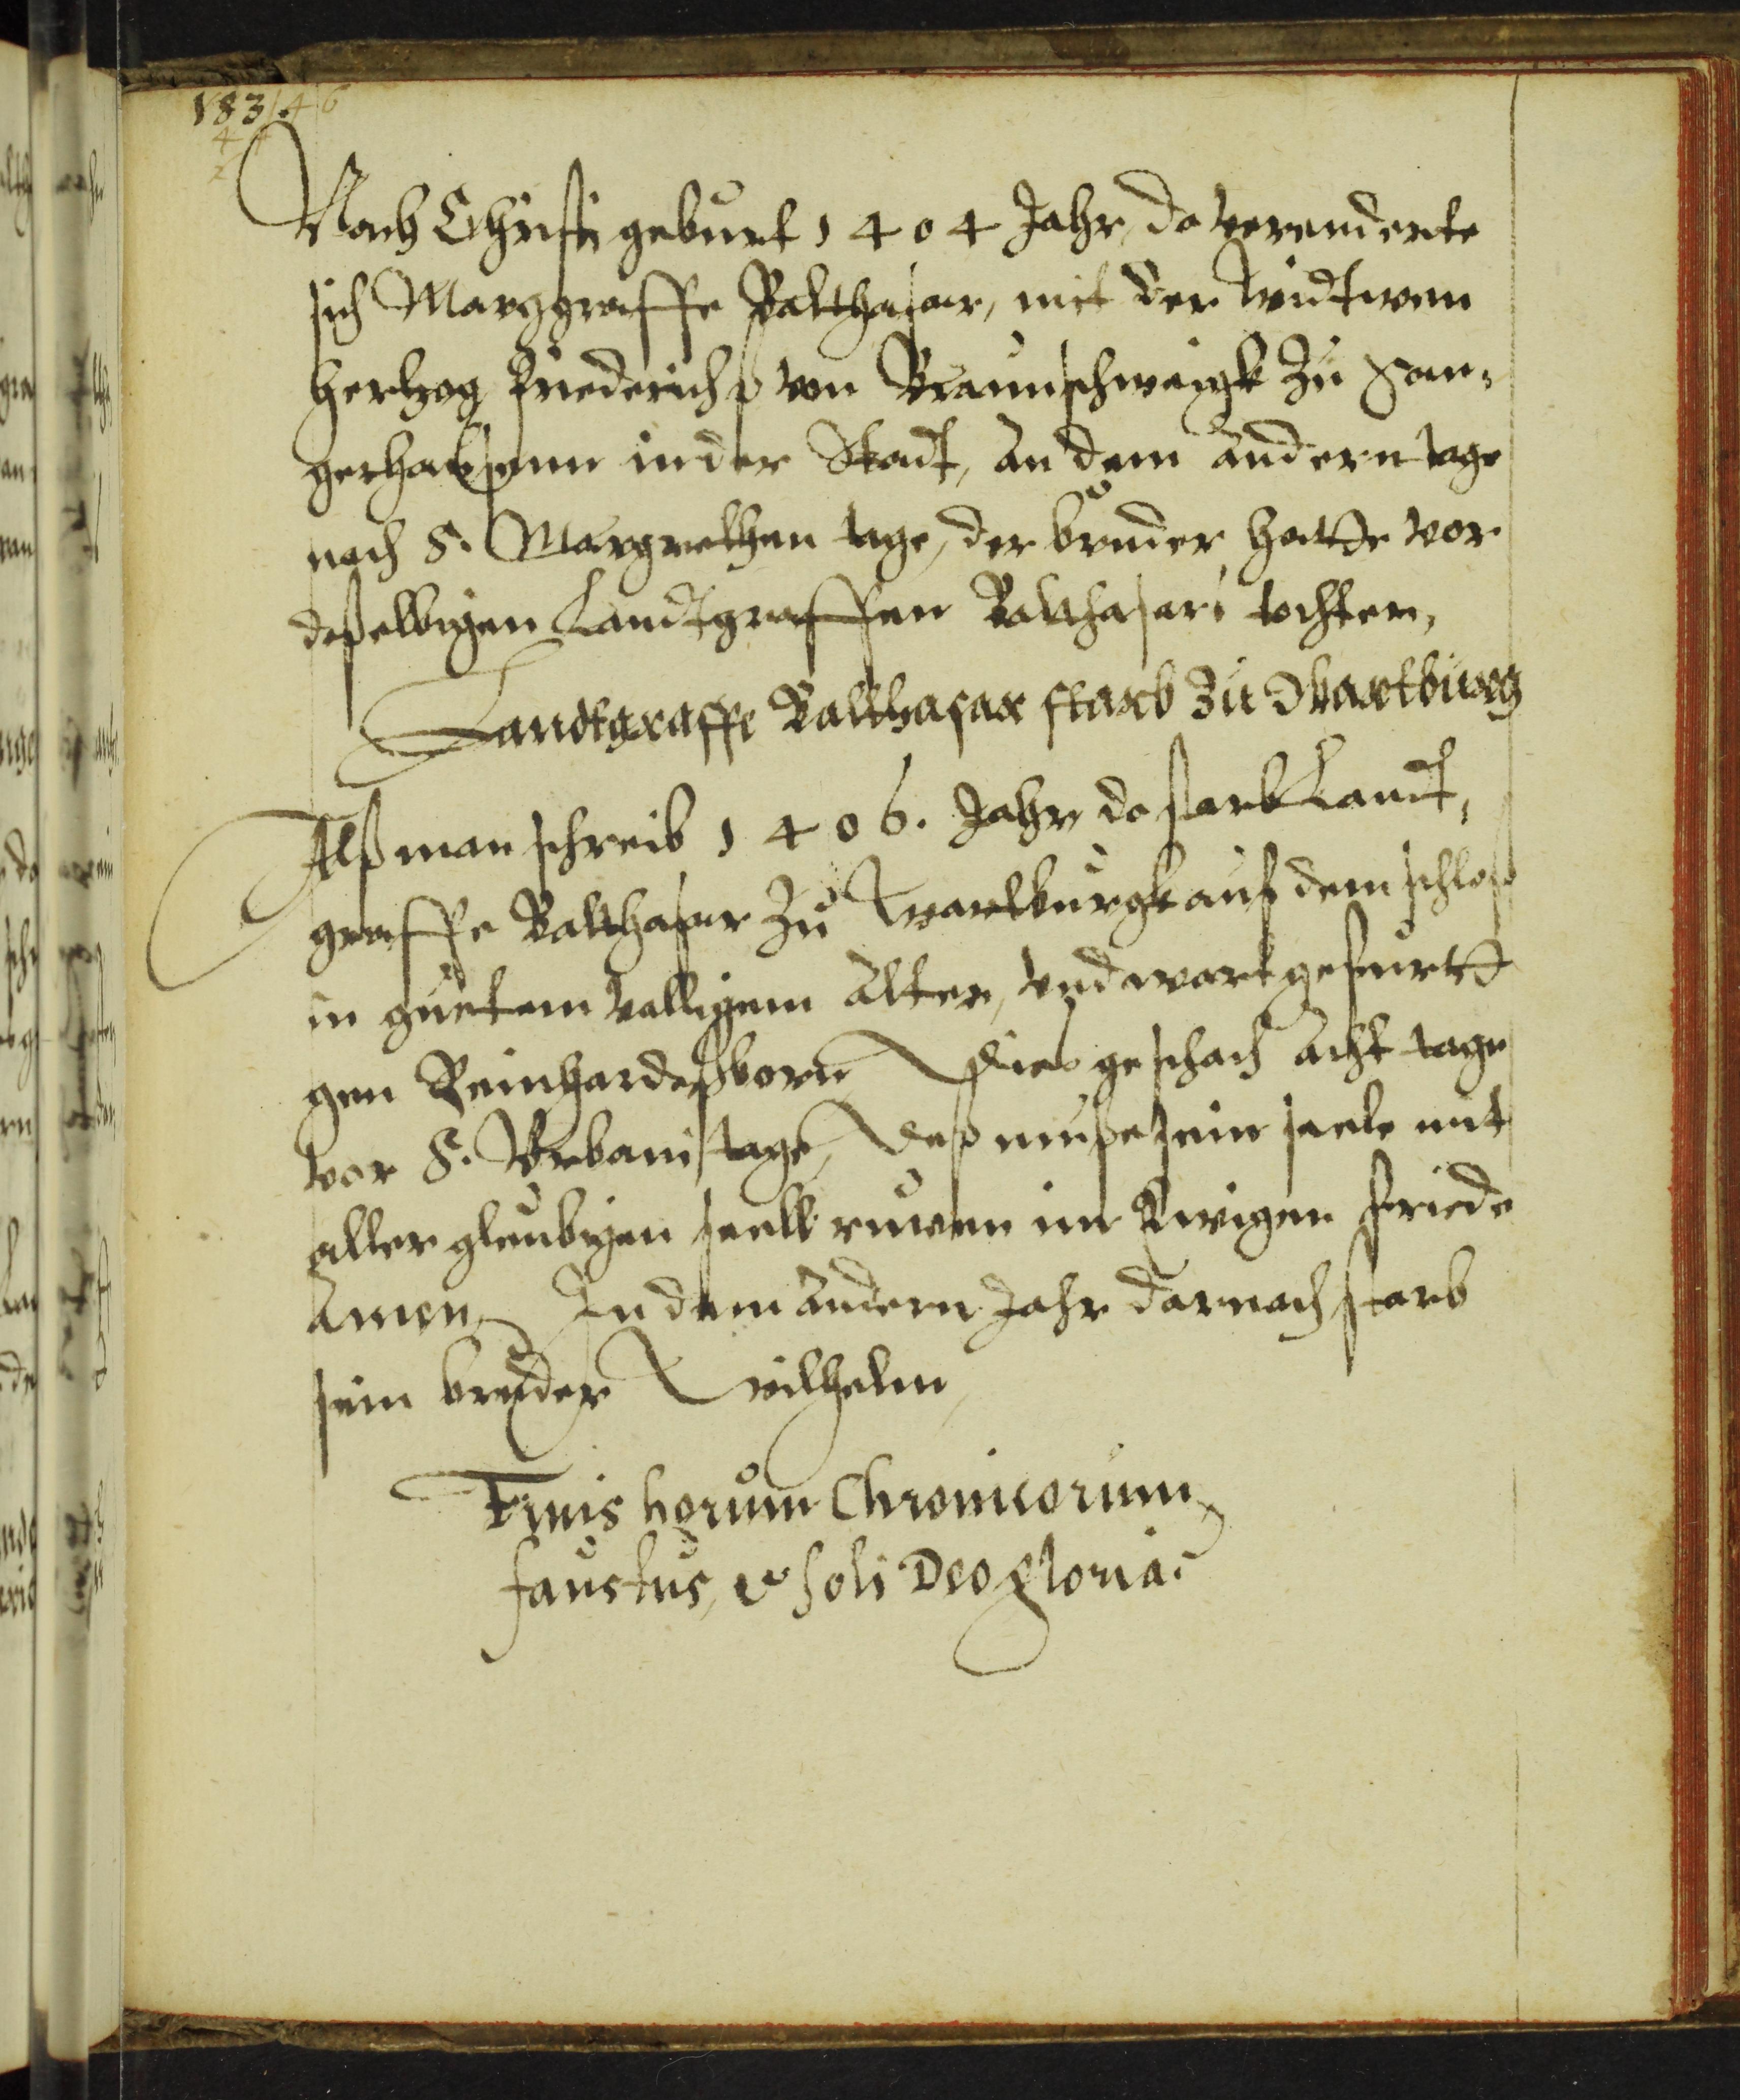 183.
Nach Christi geburt 1404 Jahr, da verenderte
sich Marggraffe Balthasar, mit der widtwen
Hertzog Friederichß von Braunschweigk zu San¬
gerhaußenn in der Stadt, an dem andern tage
nach S. Margrethen tage, der bruder hatte vor
deßelbigen Landtgraffen Balthasari tochter,
Landtgraffe Balthasar starb zu Wartburg
Alß man schreib 1406. Jahr, da starb Landt,
graffe Balthasar zu Wartburgk auf dem schloß
in guetem volligem Alter, vnd wart gefurtt
gen Reinhardeßborn, Dies geschach acht tage
vor S. Vrbanistage, Deß muße sein seele mit
aller gleubigen seell ruwen im Ewigen friede
Amen, In dem andern Jahr darnach starb
sein bruder Wilhelm,
Finis horum Chronicorum,
faustus, et soli Deo gloria.